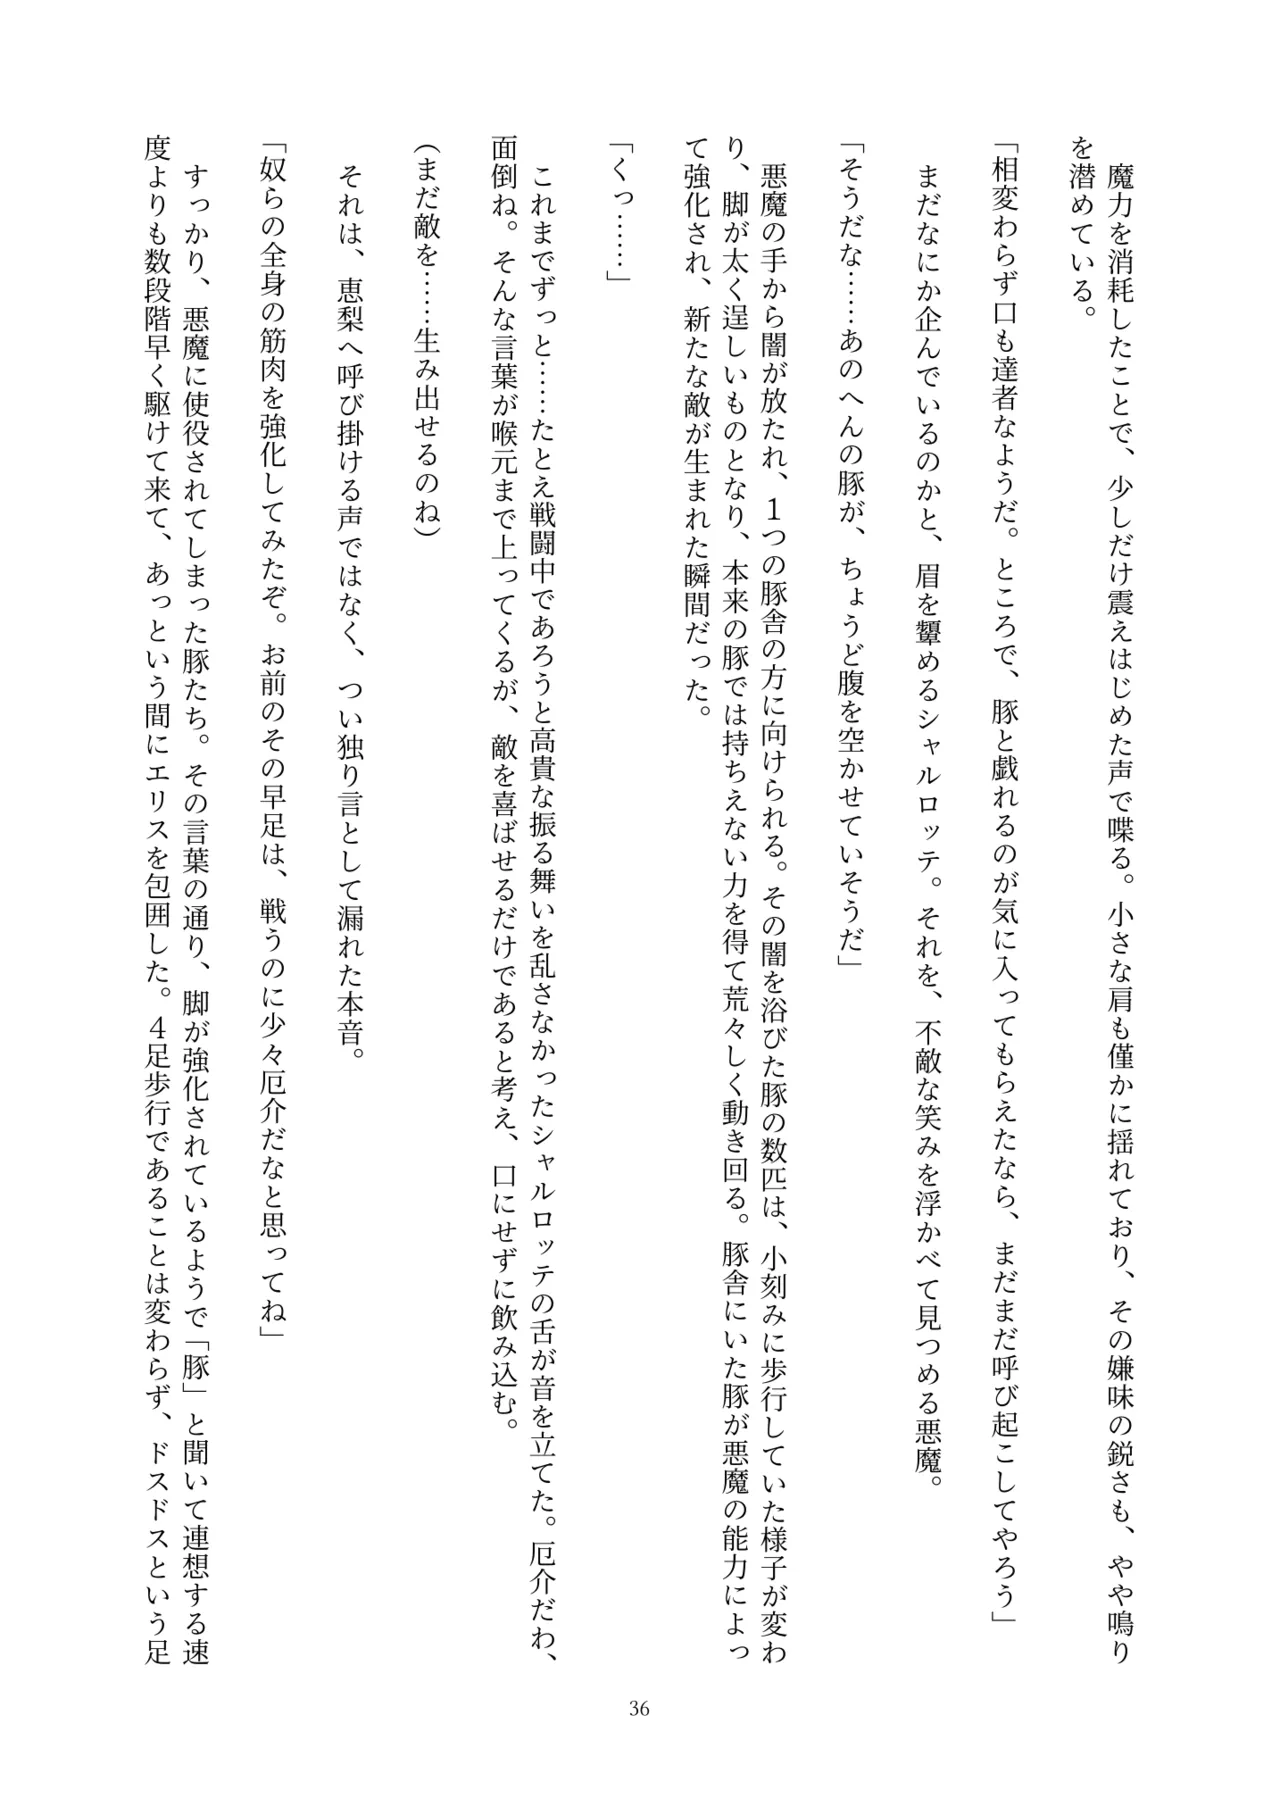 魔力を消耗したことで、少しだけ震えはじめた声で喋る。小さな肩も僅かに揺れており、その嫌味の鋭さも、やや鳴り
を潜めている。
「相変わらず口も達者なようだ。ところで、豚と戯れるのが気に入ってもらえたなら、まだまだ呼び起こしてやろう」
　まだなにか企んでいるのかと、眉を顰めるシャルロッテ。それを、不敵な笑みを浮かべて見つめる悪魔。
「そうだな……あのへんの豚が、ちょうど腹を空かせていそうだ」
　悪魔の手から闇が放たれ、1つの豚舎の方に向けられる。その闇を浴びた豚の数匹は、小刻みに歩行していた様子が変わ
り、脚が太く逞しいものとなり、本来の豚では持ちえない力を得て荒々しく動き回る。豚舎にいた豚が悪魔の能力によっ
て強化され、新たな敵が生まれた瞬間だった。
「くっ……」
　これまでずっと……たとえ戦闘中であろうと高貴な振る舞いを乱さなかったシャルロッテの舌が音を立てた。厄介だわ、
面倒ね。そんな言葉が喉元まで上ってくるが、敵を喜ばせるだけであると考え、口にせずに飲み込む。
(まだ敵を……生み出せるのね)
　それは、恵梨へ呼び掛ける声ではなく、つい独り言として漏れた本音。
「奴らの全身の筋肉を強化してみたぞ。お前のその早足は、戦うのに少々厄介だなと思ってね」
　すっかり、悪魔に使役されてしまった豚たち。その言葉の通り、脚が強化されているようで「豚」と聞いて連想する速
度よりも数段階早く駆けて来て、あっという間にエリスを包囲した。4足歩行であることは変わらず、ドスドスという足
36